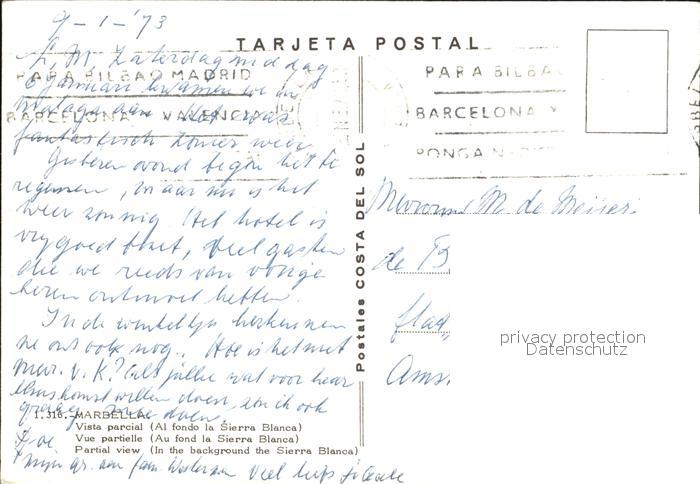 9-1-'73
TARJETA POSTAL
L. M, Zaterdagmiddag
6 januari kwamen we in
Malaga aan. Het was
fantastisch zomer weer.
Gisteren avond begon het te
regenen, maar nu is het
weer zonnig. Het hotel is
erg goed bezet, veel gasten
die we reeds van vorige
keren ontmoet hebben.
In de winkeltjes herkennen
ze ons ook nog. Hoe is het met
mevr. v. K.? Als jullie wat voor haar
thuiskomst willen doen, zou ik ook
graag mee doen.
PARA BILBAO MADRID
BARCELONA VALENCIA
PARA BILBA
BARCELONA Y
PONGA
Mevrouw M. de
de
flat,
Ams.
Postales COSTA DEL SOL
privacy protection
Datenschutz
1.316.-MARBELLA.
Vista parcial (Al fondo la Sierra Blanca)
Vue partielle (Au fond la Sierra Blanca)
Partial view (In the background the Sierra Blanca)
mijn gr. aan fam. Westerman veel liefs